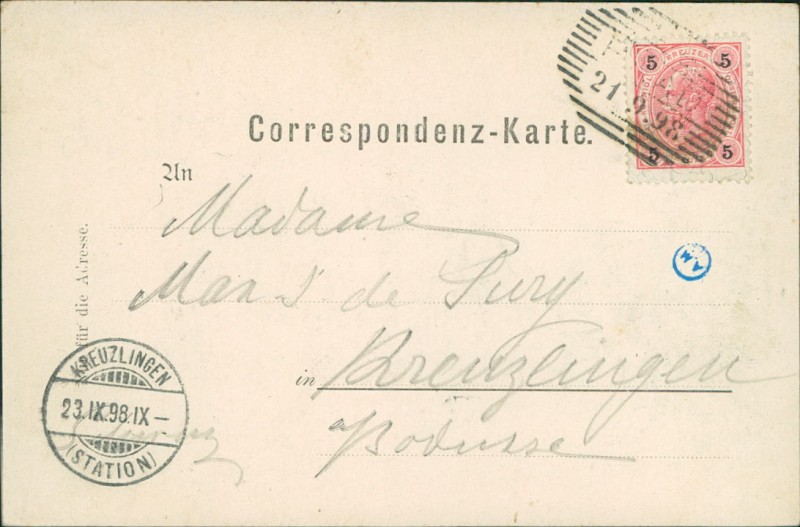 5 KREUZER 5
21.9.98
5 5
Correspondenz-Karte.
An
Madame
Max J. de Pury
in Kreuzlingen
a/Bodensee
Schweiz
für die Adresse.
AM
KREUZLINGEN
23.IX.98.IX–
(STATION)